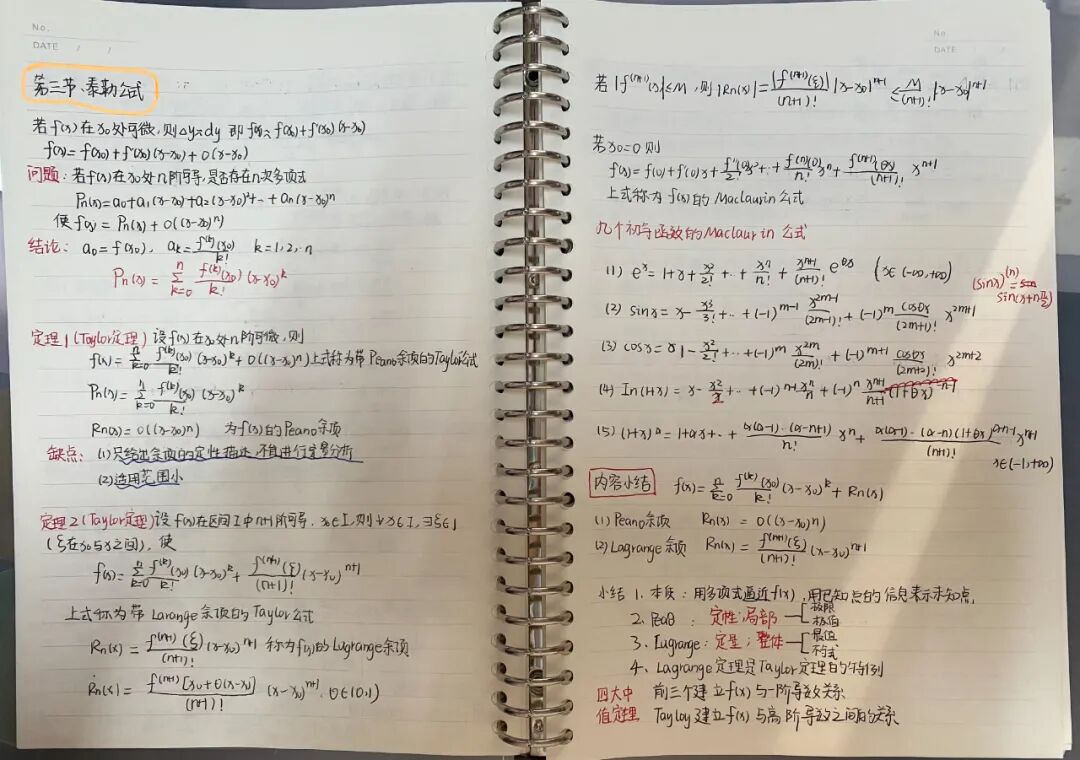 No.
DATE / /
第三节、泰勒公式
若f(x)在x₀处可微,则Δy≈dy 即 f(x)≈f(x₀)+f'(x₀)(x-x₀)
f(x)=f(x₀)+f'(x₀)(x-x₀)+o(x-x₀)
问题:若f(x)在x₀处n阶可导,是否存在n次多项式
Pn(x)=a₀+a₁(x-x₀)+a₂(x-x₀)²+…+an(x-x₀)ⁿ
使f(x)=Pn(x)+o((x-x₀)ⁿ)
结论:a₀=f(x₀), aₖ=f⁽ᵏ⁾(x₀)/k! k=1,2,…n
Pn(x)=∑(k=0→n) f⁽ᵏ⁾(x₀)/k! (x-x₀)ᵏ
定理1(Taylor定理)设f(x)在x₀处n阶可微,则
f(x)=∑(k=0→n) f⁽ᵏ⁾(x₀)/k! (x-x₀)ᵏ+o((x-x₀)ⁿ)上式称为带Peano余项的Taylor公式
Pn(x)=∑(k=0→n) f⁽ᵏ⁾(x₀)/k! (x-x₀)ᵏ
Rn(x)=o((x-x₀)ⁿ) 为f(x)的Peano余项
缺点:(1)只给出余项的定性描述,不能进行定量分析
(2)适用范围小
定理2(Taylor定理)设f(x)在区间I中n+1阶可导,x₀∈I,则∀x∈I,∃ξ∈I
(ξ在x₀与x之间),使
f(x)=∑(k=0→n) f⁽ᵏ⁾(x₀)/k! (x-x₀)ᵏ+f⁽ⁿ⁺¹⁾(ξ)/(n+1)! (x-x₀)ⁿ⁺¹
上式称为带Larange余项的Taylor公式
Rn(x)=f⁽ⁿ⁺¹⁾(ξ)/(n+1)! (x-x₀)ⁿ⁺¹ 称为f(x)的Lagrange余项
Rn(x)=f⁽ⁿ⁺¹⁾[x₀+θ(x-x₀)]/(n+1)! (x-x₀)ⁿ⁺¹. θ∈(0,1)
No.
DATE / /
若|f⁽ⁿ⁺¹⁾(x)|≤M,则|Rn(x)|=|f⁽ⁿ⁺¹⁾(ξ)|/(n+1)! |x-x₀|ⁿ⁺¹≤M/(n+1)! |x-x₀|ⁿ⁺¹
若x₀=0则
f(x)=f(0)+f'(0)x+f''(0)/2! x²+…+f⁽ⁿ⁾(0)/n! xⁿ+f⁽ⁿ⁺¹⁾(θx)/(n+1)! xⁿ⁺¹
上式称为f(x)的Maclaurin公式
几个初等函数的Maclaurin公式
(1) eˣ=1+x+x²/2!+…+xⁿ/n!+xⁿ⁺¹/(n+1)! e^(θx) (x∈(-∞,+∞)
(sinx)⁽ⁿ⁾=
sin(x+nπ/2)
(2) sinx=x-x³/3!+…+(-1)ᵐ⁻¹ x²ᵐ⁻¹/(2m-1)!+(-1)ᵐ cosθx/(2m+1)! x²ᵐ⁺¹
(3) cosx=1-x²/2!+…+(-1)ᵐ x²ᵐ/(2m)!+(-1)ᵐ⁺¹ cosθx/(2m+2)! x²ᵐ⁺²
(4) In(1+x)=x-x²/2+…+(-1)ⁿ⁺¹ xⁿ/n+(-1)ⁿ xⁿ⁺¹/n+1 (1+θx)⁻ⁿ⁻¹
(5) (1+x)ᵅ=1+αx+…+α(α-1)…(α-n+1)/n! xⁿ+α(α-1)…(α-n)(1+θx)^(α-n-1)/(n+1)! xⁿ⁺¹
x∈(-1,+∞)
内容小结 f(x)=∑(k=0→n) f⁽ᵏ⁾(x₀)/k! (x-x₀)ᵏ+Rn(x)
(1)Peano余项 Rn(x)=o((x-x₀)ⁿ)
(2)Lagrange余项 Rn(x)=f⁽ⁿ⁺¹⁾(ξ)/(n+1)! (x-x₀)ⁿ⁺¹
小结 1.本质:用多项式逼近f(x),用已知点的信息表示未知点,
2. : 定性;局部 极限 极值
3. Lagrange:定量;整体 最值 不等式
4. Lagrange定理是Taylor定理的特例
四大中 前三个建立f(x)与一阶导数关系
值定理 Tayloy建立f(x)与高阶导数之间的关系